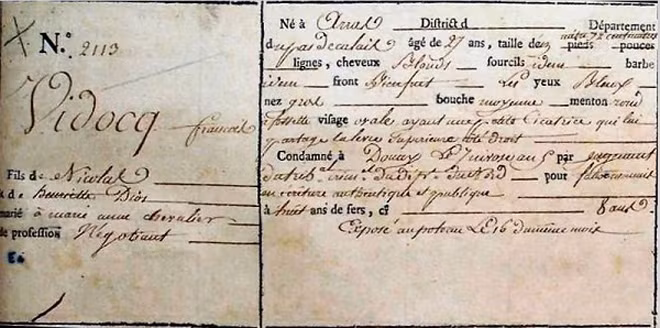 N.º 2113
Vidocq
francois
Fils de Nicolas
& de henriette Dion
marié à marie anne chevalier
de profession Négotiant
Né à Arras District d Département
du pas de calais âgé de 27 ans, taille de 1 mètre 72 centimètres pieds pouces
lignes, cheveux Blonds sourcils idem barbe
idem front Bienfait Les yeux Bleux
nez gros bouche moyenne menton rond
fossette visage ovale ayant une petite cicatrice qui lui
partage la levre superieure côté droit
Condamné à Douay Le 7 nivose an 5 par jugement
du trib.al crim.el du dép.t du nord pour
en écriture authentique et publique
à huit ans de fers, ci 8 ans
Exposé au poteau Le 16 du même mois